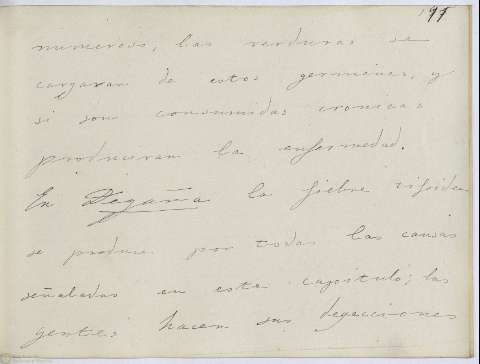 177
numeroso, las verduras se
cargaran de estos germenes, y
si son consumidas cronicas
produciran la enfermedad.
En Degaña la fiebre tifoidea
se produce por todas las causas
señaladas en este capitulo; las
gentes hacen sus deyecciones